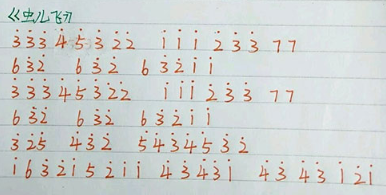 《虫儿飞》
3̇ 3̇ 3̇ 4̇ 5̇ 3̇ 2̇ 2̇ 1̇ 1̇ 1̇ 2̇ 3̇ 3̇ 7 7
6 3̇ 2̇ 6 3̇ 2̇ 6 3̇ 2̇ 1̇ 1̇
3̇ 3̇ 3̇ 4̇ 5̇ 3̇ 2̇ 2̇ 1̇ 1̇ 1̇ 2̇ 3̇ 3̇ 7 7
6 3̇ 2̇ 6 3̇ 2̇ 6 3̇ 2̇ 1̇ 1̇
3̇ 2̇ 5 4̇ 3̇ 2̇ 5̇ 4̇ 3̇ 4̇ 5̇ 3̇ 2̇
1̇ 6 3̇ 2̇ 1̇ 5 2̇ 1̇ 1̇ 4̇ 3̇ 4̇ 3̇ 1̇ 4̇ 3̇ 4̇ 3̇ 1̇ 2̇ 1̇